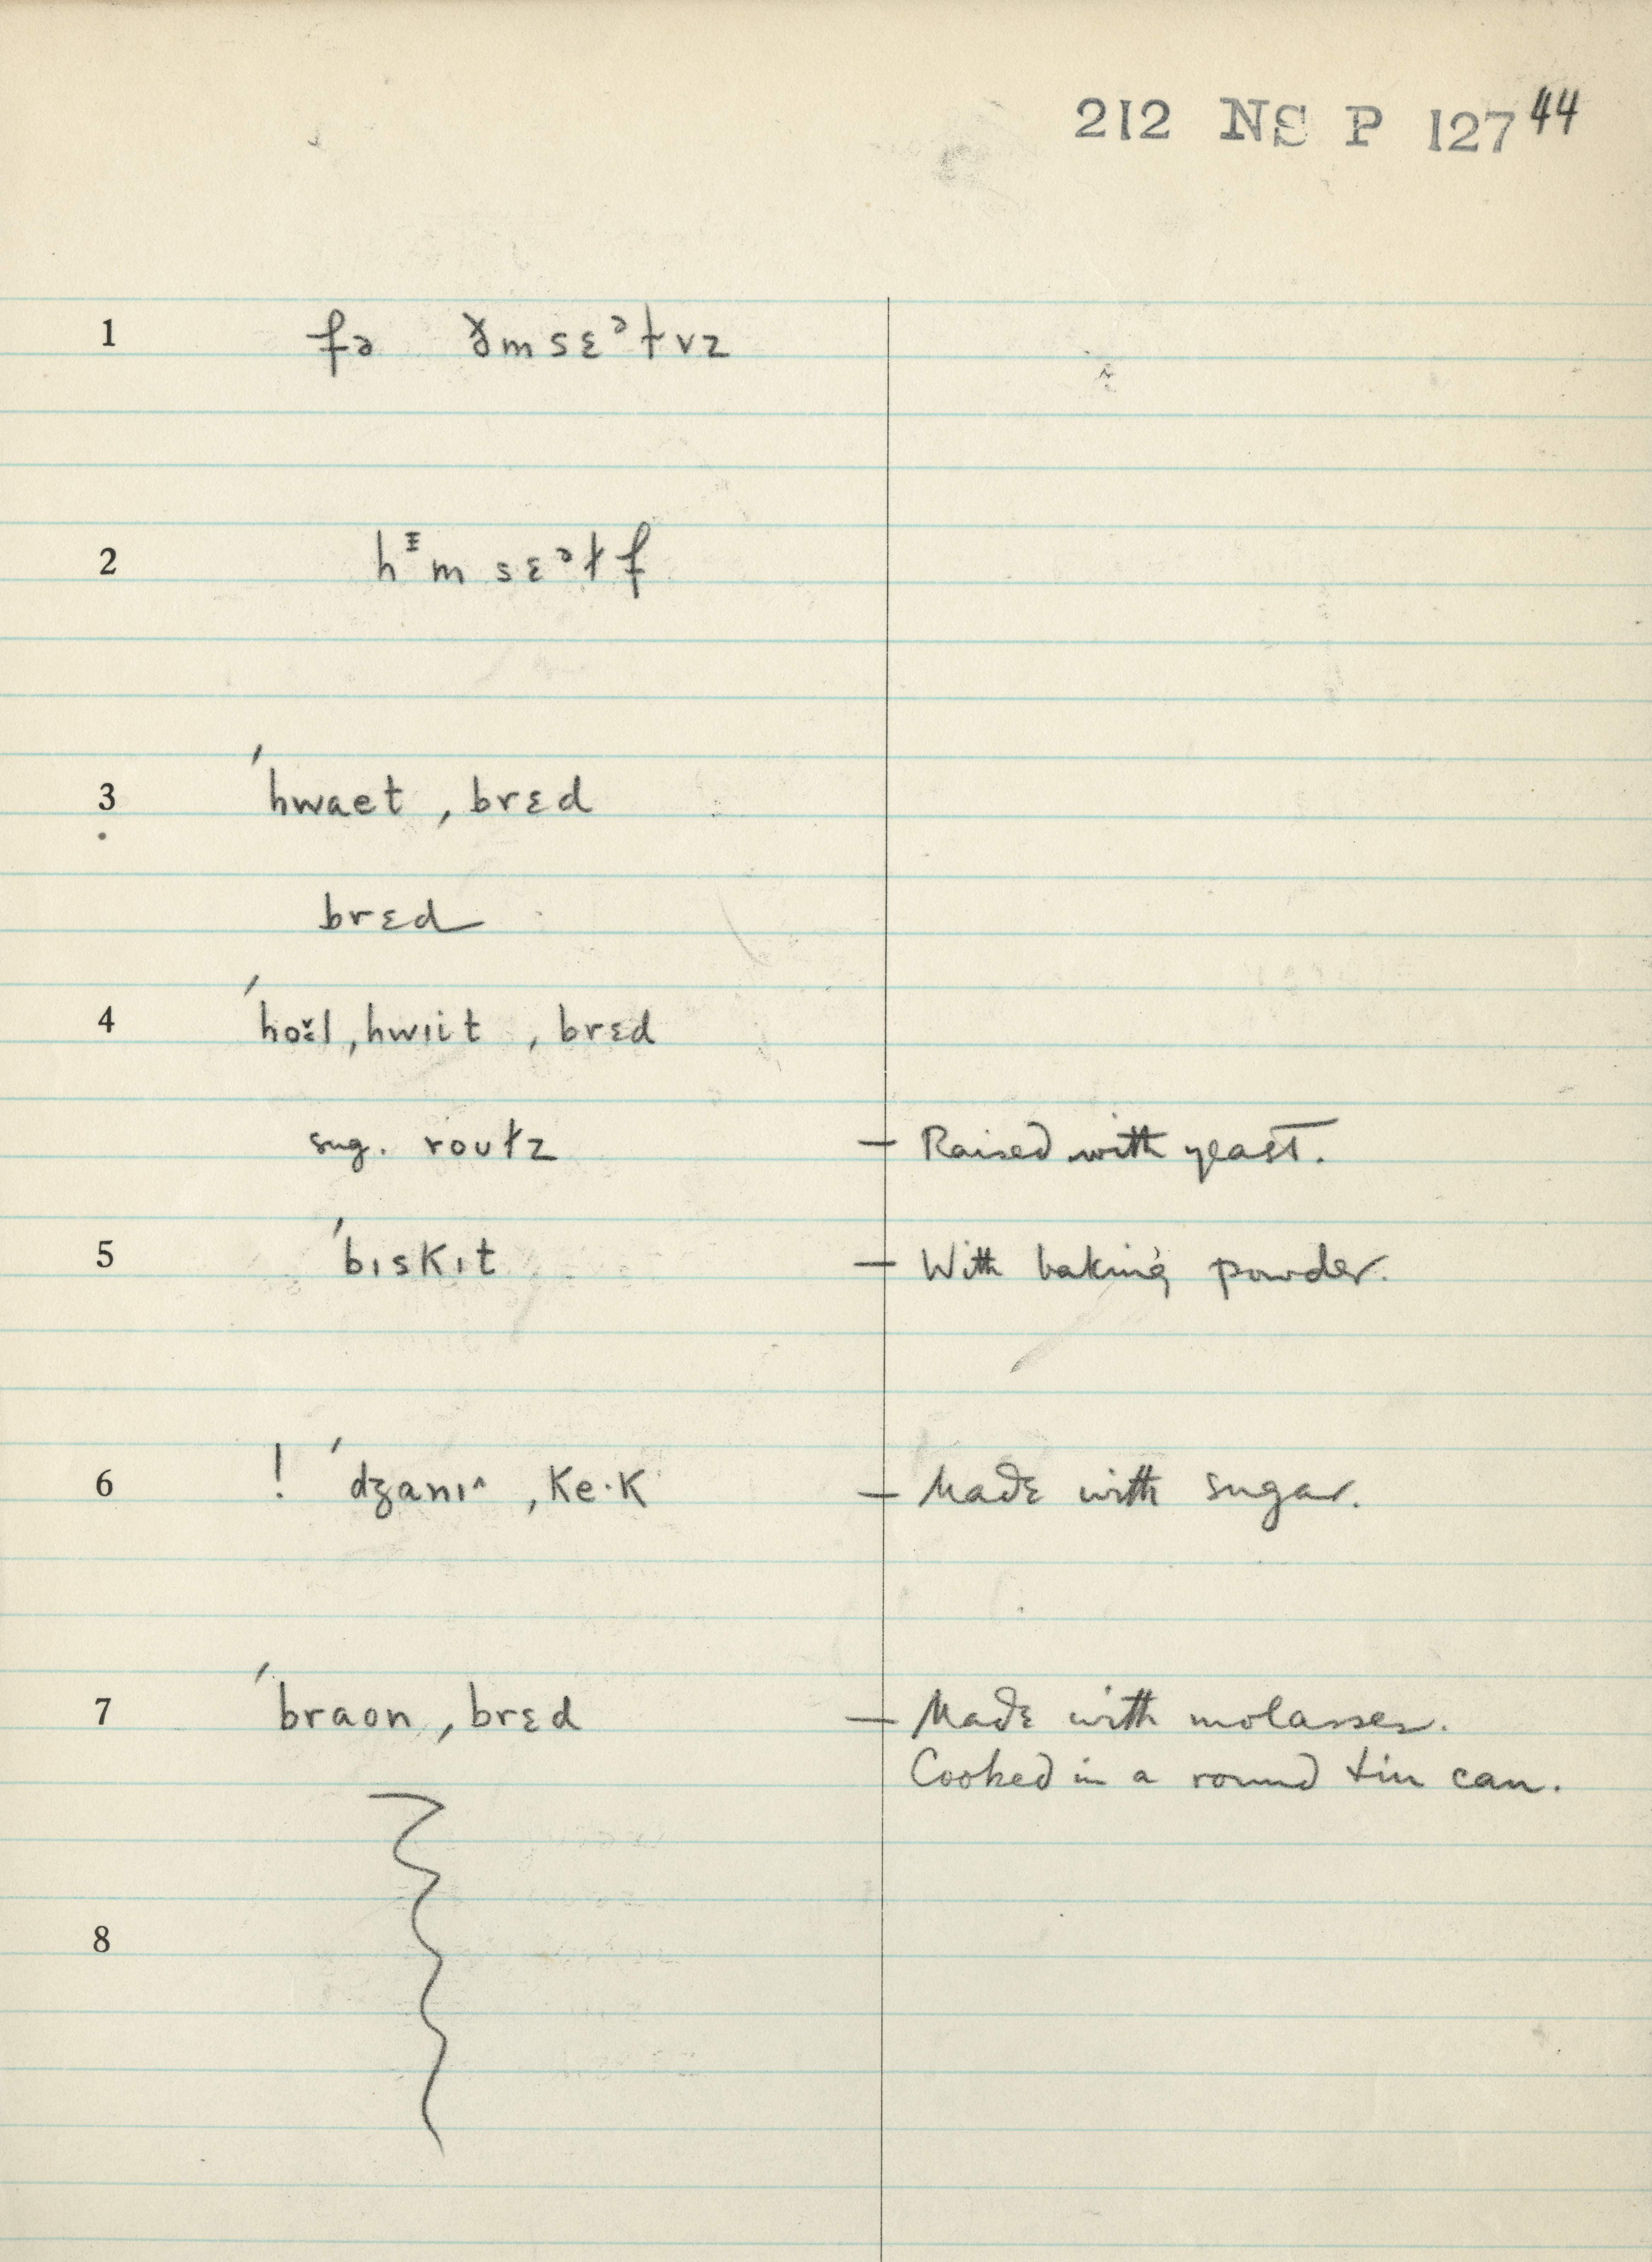 212 NS P 127 44
1 fə ɤmsɛᵊɫvz
2 hᵻmsɛᵊɫf
3 ˈhwaet ˌbrɛd
brɛd
4 ˌhwiit ˌbrɛd
sug. rouɫz
— Raised with yeast.
5 ˈbɪskɪt
— With baking powder.
6 ! ˈdʒanɪ^ ˌke·k
— Made with sugar.
7 ˈbraon ˌbrɛd
— Made with molasses.
Cooked in a round tin can.
8